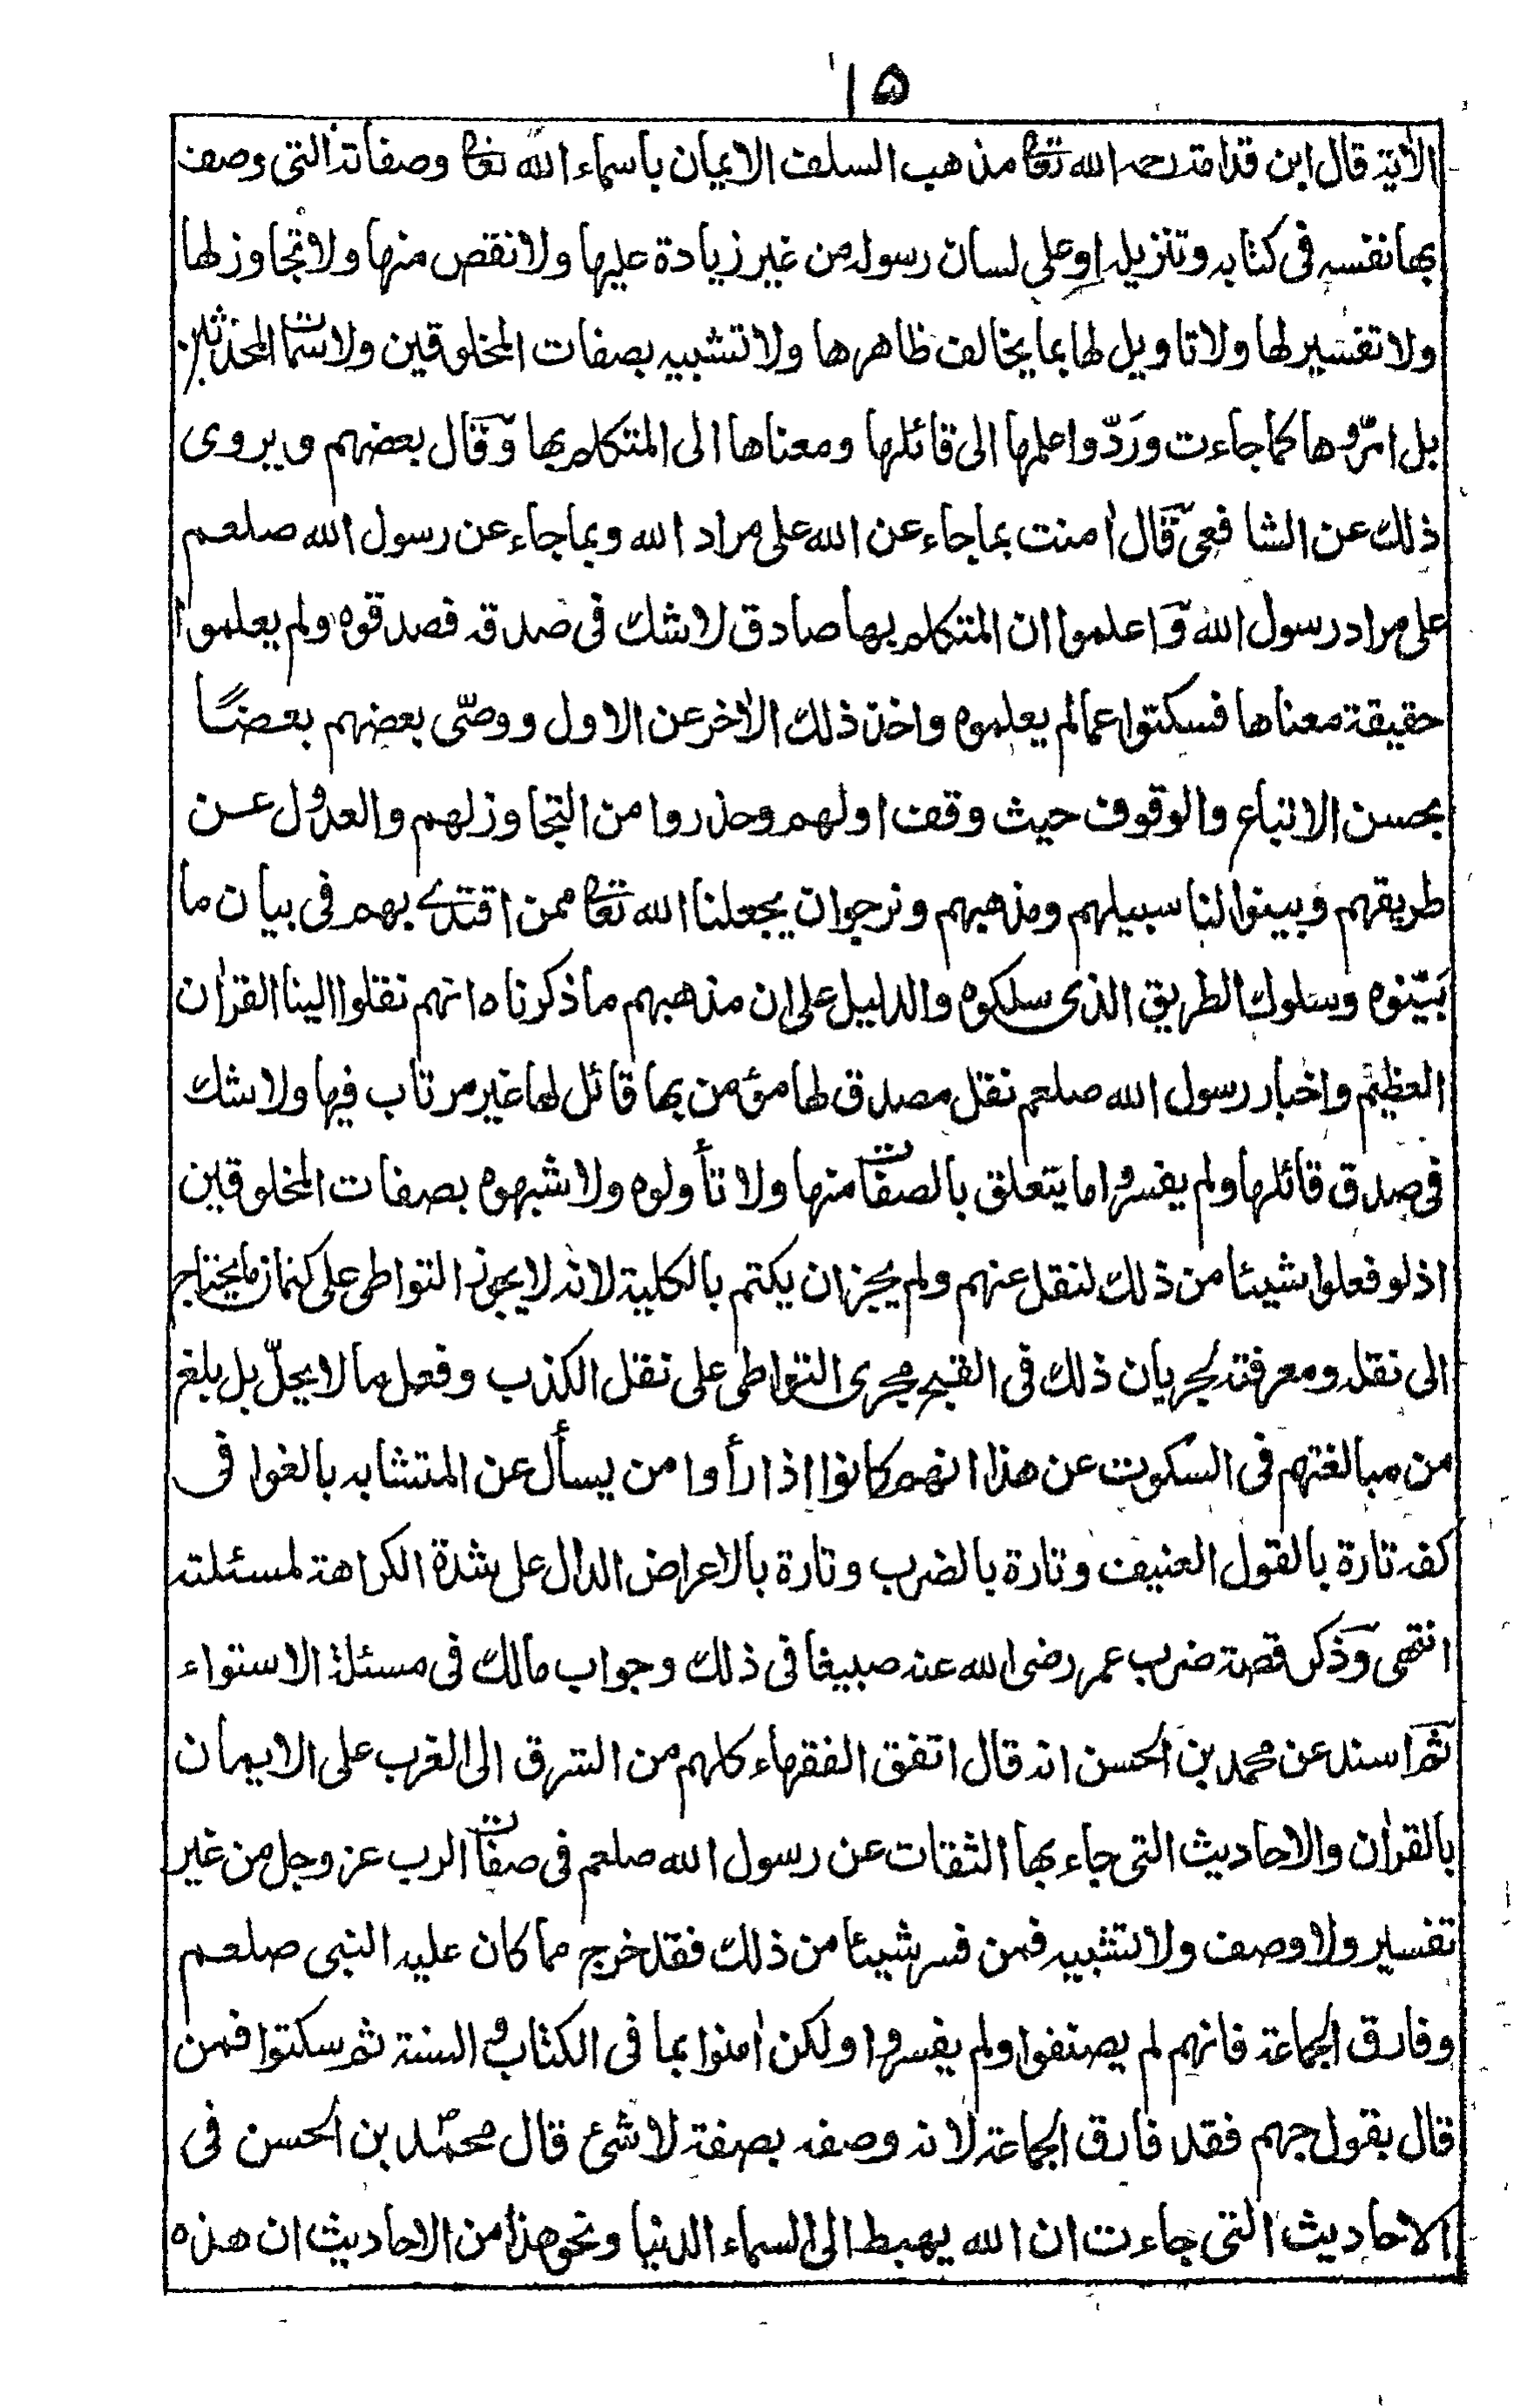 ١٥
الاٰية قال ابن قدامة رحمه الله تعا مذهب السلف الايمان باسماء الله تعا وصفاته التى وصف
بها نفسه فى كتابه وتنزيله او على لسان رسوله من غير زيادة عليها ولا نقص منها ولا تجاوز لها
ولا تفسير لها ولا تاويل لها بما يخالف ظاهرها ولا تشبيه بصفات المخلوقين ولا سمات المحدثين
بل امرّوها كما جاءت وردّوا علمها الى قائلها ومعناها الى المتكلم بها وقال بعضهم ويروى
ذلك عن الشافعى قال اٰمنت بما جاء عن الله على مراد الله وبما جاء عن رسول الله صلعم
على مراد رسول الله واعلموا ان المتكلم بها صادق لا شك فى صدقه فصدقوه ولم يعلموا
حقيقة معناها فسكتوا عما لم يعلموه واخذ ذلك الاٰخر عن الاول ووصّى بعضهم بعضًا
بحسن الاتباع والوقوف حيث وقف اولهم وحذروا من التجاوز لهم والعدول عن
طريقهم وبينوا لنا سبيلهم ومذهبهم ونرجو ان يجعلنا الله تعا ممن اقتدى بهم فى بيان ما
بَيّنوه وسلوك الطريق الذى سلكوه والدليل على ان مذهبهم ما ذكرناه انهم نقلوا الينا القراٰن
العظيم واخبار رسول الله صلعم نقل مصدق لها مؤمن بها قائل لها غير مرتاب فيها ولا شك
فى صدق قائلها ولم يفسروا ما يتعلق بالصفات منها ولا تأولوه ولا شبهوه بصفات المخلوقين
اذ لو فعلوا شيئا من ذلك لنقل عنهم ولم يجز ان يكتم بالكلية لانه لا يجوز التواطى على كتمان ما يحتاج
الى نقله ومعرفته لجريان ذلك فى القبح مجرى التواطى على نقل الكذب وفعل ما لا يحلّ بل بلغ
من مبالغتهم فى السكوت عن هذا انهم كانوا اذا رأوا من يسأل عن المتشابه بالغوا فى
كفه تارة بالقول العنيف وتارة بالضرب وتارة بالاعراض الدال على شدة الكراهة لمسئلته
انتهى وذكر قصة ضرب عمر رضى الله عنه صبيغا فى ذلك وجواب مالك فى مسئلة الاستواء
ثم اسند عن محمد بن الحسن انه قال اتفق الفقهاء كلهم من الشرق الى الغرب على الايمان
بالقراٰن والاحاديث التى جاء بها الثقات عن رسول الله صلعم فى صفات الرب عز وجل من غير
تفسير ولا وصف ولا تشبيه فمن فسر شيئا من ذلك فقد خرج مما كان عليه النبى صلعم
وفارق الجماعة فانهم لم يصنفوا ولم يفسروا ولكن اٰمنوا بما فى الكتاب والسنة ثم سكتوا فمن
قال بقول جهم فقد فارق الجماعة لانه وصفه بصفة لا شئ قال محمد بن الحسن فى
الاحاديث التى جاءت ان الله يهبط الى السماء الدنيا ونحو هذا من الاحاديث ان هذه